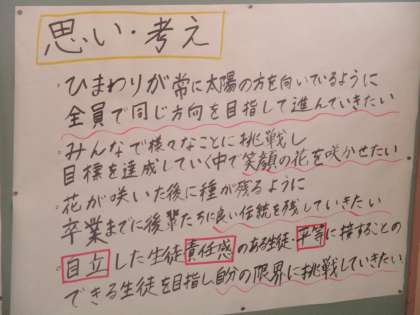 思い・考え
・ひまわりが常に太陽の方を向いているように
全員で同じ方向を目指して進んでいきたい
・みんなで様々なことに挑戦し
目標を達成していく中で笑顔の花を咲かせたい
・花が咲いた後に種が残るように
卒業までに後輩たちに良い伝統を残していきたい
・自立した生徒責任感のある生徒・平等に接することの
できる生徒を目指し自分の限界に挑戦していきたい